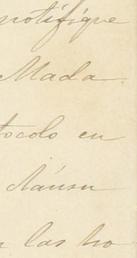 notifique
Mada
tocolo en
cláusu
n las ho